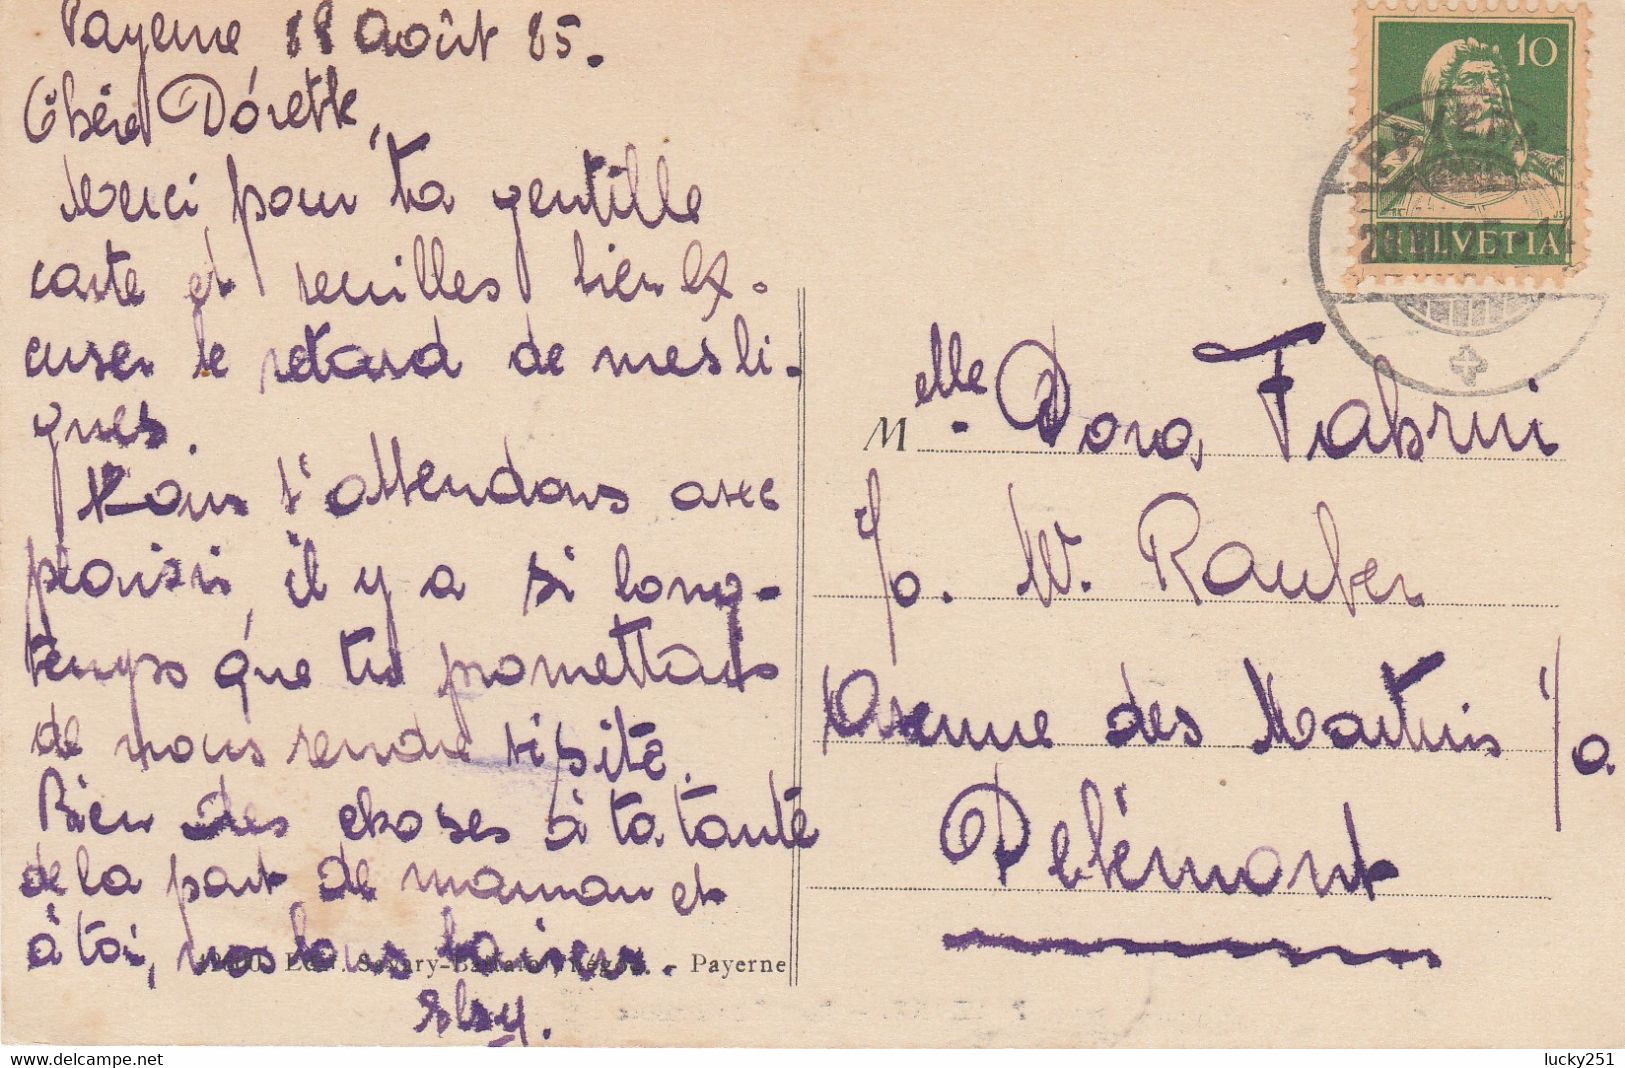 Payerne, 28 Août 25.
Chère Dorette,
Merci pour ta gentille
carte et veuilles bien ex-
cuser le retard de mes li-
gnes.
Nous t'attendons avec
plaisir, il y a si long-
temps que tu promettais
de nous rendre visite.
Bien des choses à ta tante
de la part de maman et
à toi, nos bons baisers.
Elsy.
Edit. Savary-Battaïo, Négoc. - Payerne
10
HELVETIA
PAYERNE
Melle. Dora Fabrini
c/o. W. Rauber
Avenue des Martins 1/a
Delémont
delcampe.net
lucky251